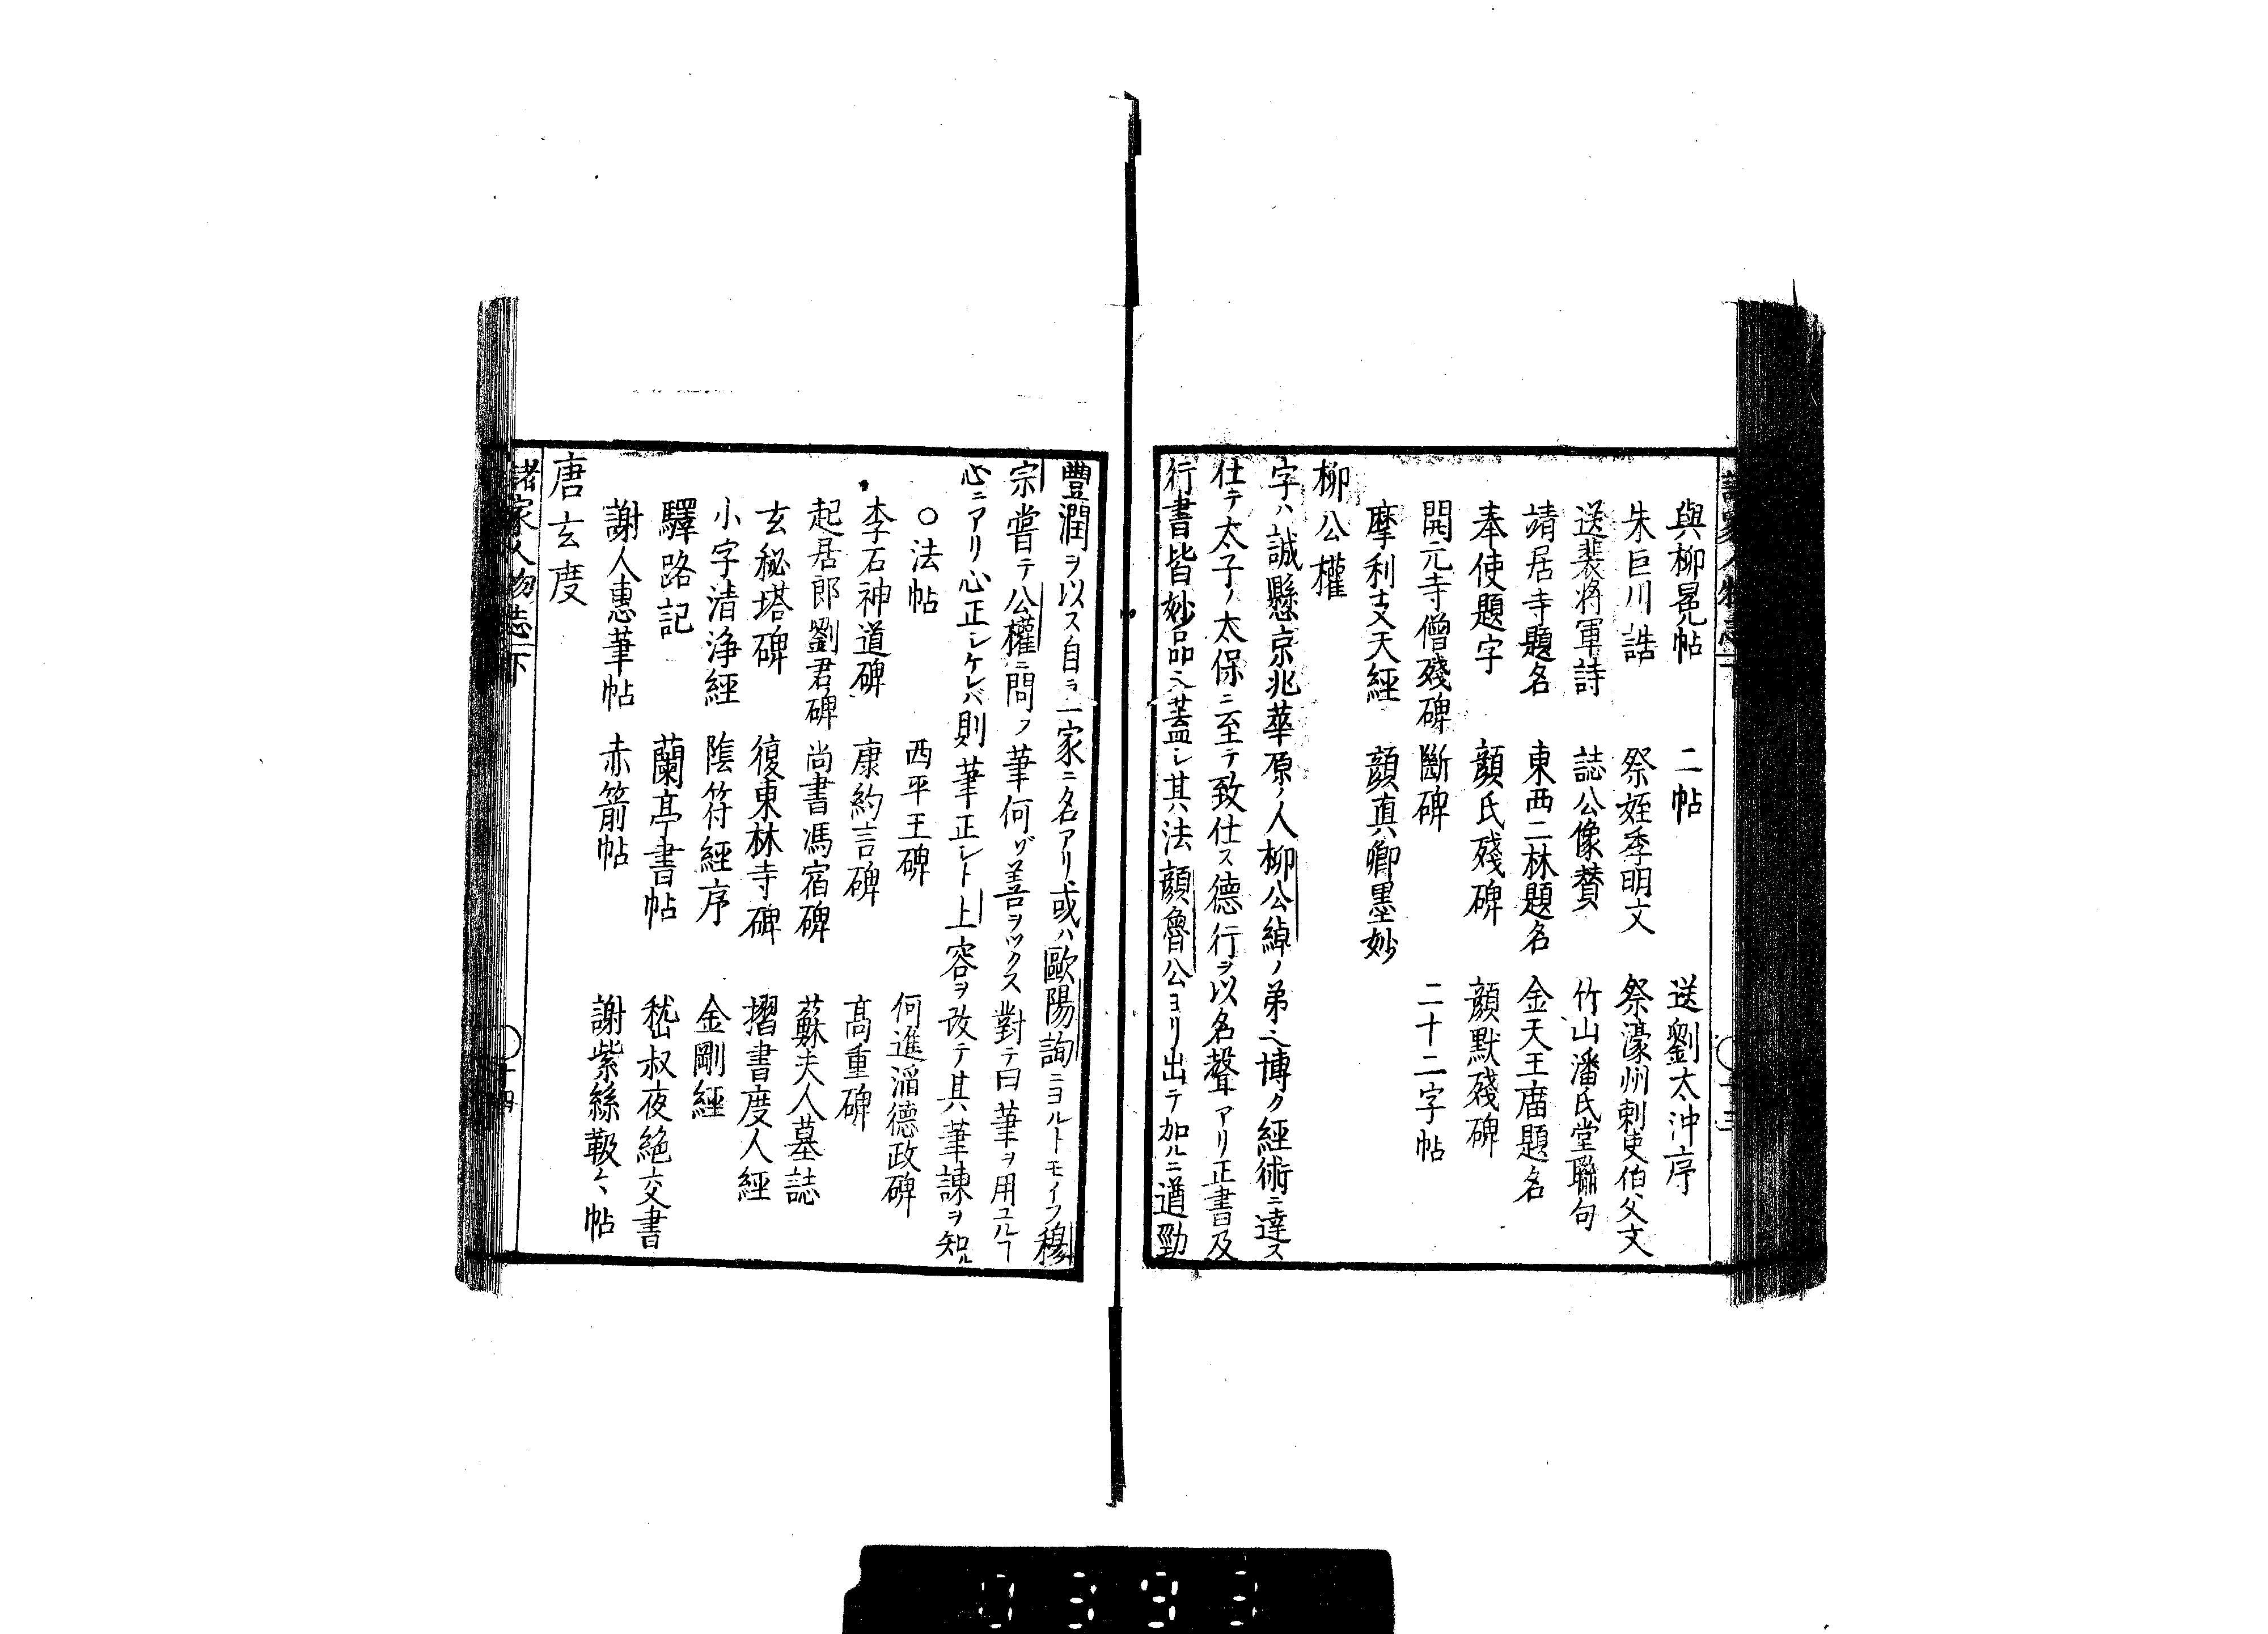 與柳冕帖　二帖　送劉太沖序
朱巨川誥　祭姪季明文　祭濠州刺史伯父文
送裴將軍詩　誌公像賛　竹山潘氏堂聯句
靖居寺題名　東西二林題名　金天王廟題名
奉使題字　顔氏殘碑　顔默殘碑
開元寺僧殘碑　斷碑　二十二字帖
摩利支天經　顔眞卿墨妙
柳公權
字ハ誠懸京兆華原ノ人柳公綽ノ弟也博ク經術ニ達ス
仕テ太子ノ太保ニ至テ致仕ス德行ヲ以名聲アリ正書及
行書皆妙品ニ入蓋シ其法顔魯公ヨリ出テ加ルニ遒勁
豐潤ヲ以ス自ラ一家ニ名アリ或ハ歐陽詢ニヨルトモイフ穆
宗嘗テ公權ニ問フ筆何ゾ善ヲツクス對テ曰筆ヲ用ユルヿ
心ニアリ心正シケレバ則筆正シト上容ヲ改テ其筆諌ヲ知ル
○法帖　西平王碑　何進滔德政碑
李石神道碑　康約言碑　髙重碑
起居郎劉君碑　尚書馮宿碑　蘇夫人墓誌
玄秘塔碑　復東林寺碑　摺書度人經
小字清浄經　陰符經序　金剛經
驛路記　蘭亭書帖　嵇叔夜絶交書
謝人惠筆帖　赤箭帖　謝紫絲靸鞋帖
唐玄度
諸家人物志下　○十四